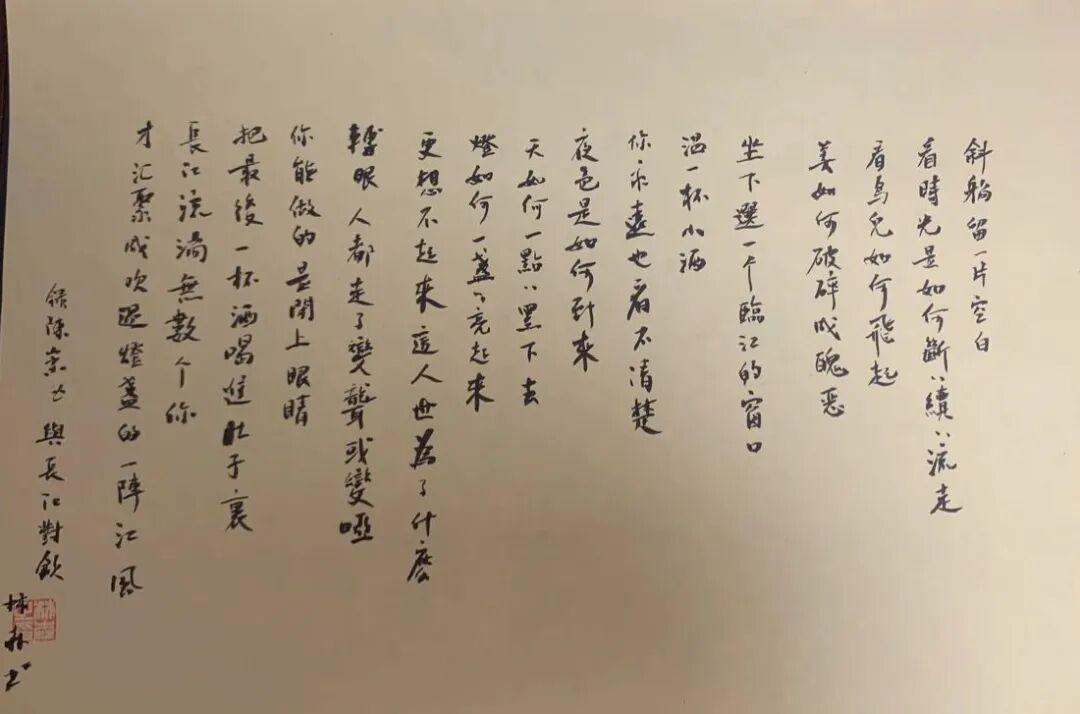 斜躺留一片空白
看時光是如何斷〻續〻流走
看鳥兒如何飛起
美如何破碎成醜惡
坐下選一个臨江的窗口
温一杯小酒
你永遠也看不清楚
夜色是如何到來
天如何一點〻黑下去
燈如何一盞〻亮起來
更想不起來這人世為了什麼
轉眼人都走了變聾或變啞
你能做的是閉上眼睛
把最後一杯酒喝進肚子裏
長江流淌無數个你
才汇聚成吹過燈盞的一陣江風
錄陳 與長江對飲
林 书